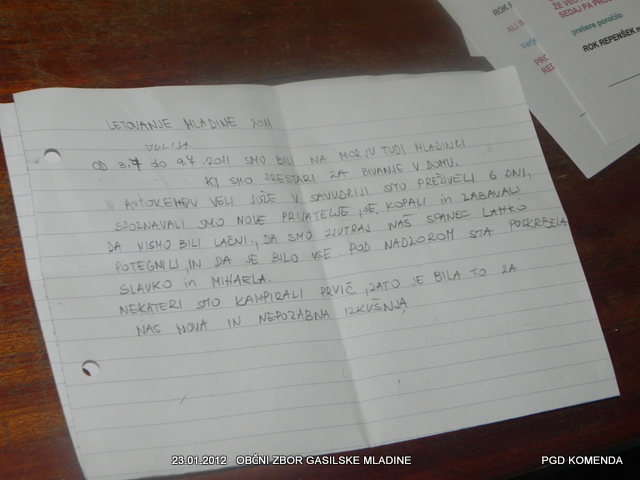 LETOVANJE MLADINE 2011
JULIJA
OD 3.7 do 9.7.2011 SMO BILI NA MORJU TUDI MLADINCI
KI SMO PRESTARI ZA BIVANJE V DOMU.
V AVTOKEMPU VELI JOŽE V SAVUDRIJI SMO PREŽIVELI 6 DNI,
SPOZNAVALI SMO NOVE PRIJATELJE, SE KOPALI in ZABAVALI
DA NISMO BILI LAČNI, DA SMO ZJUTRAJ NAŠ SPANEC LAHKO
POTEGNILI, IN DA JE BILO VSE POD NADZOROM STA POSKRBELA
SLAVKO in MIHAELA.
NEKATERI SMO KAMPIRALI PRVIČ, ZATO JE BILA TO ZA
NAS NOVA IN NEPOZABNA IZKUŠNJA
ROK REPENŠEK
ŽE VEČ
SEDAJ PA
prebere poročilo
ROK REPENŠEK
23.01.2012 OBČNI ZBOR GASILSKE MLADINE
PGD KOMENDA